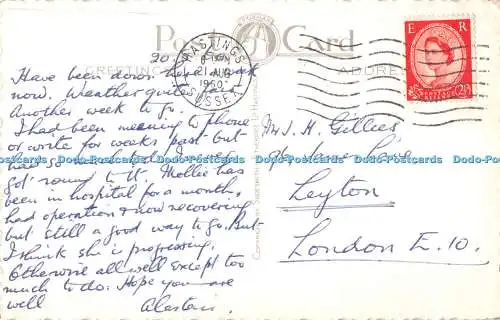 Post Card
GREETING
ADDRESS
HASTINGS
21 AUG
1950
SUSSEX
E R
2½
20
Have been down here week
now. Weather quite
Another week to go.
I had been meaning to phone
or write for weeks past but
had so
got round to it. Mollie has
been in hospital for a month,
had operation & now recovering
but still a good way to go. But
I think she is progressing.
Otherwise all well except too
much to do. Hope you are
well Alastair
J. H. Gillies
Leyton
London E.10.
Dodo-Postcards Dodo-Postcards Dodo-Postcards Dodo-Postcards Dodo-Postcards Dodo-Postcards